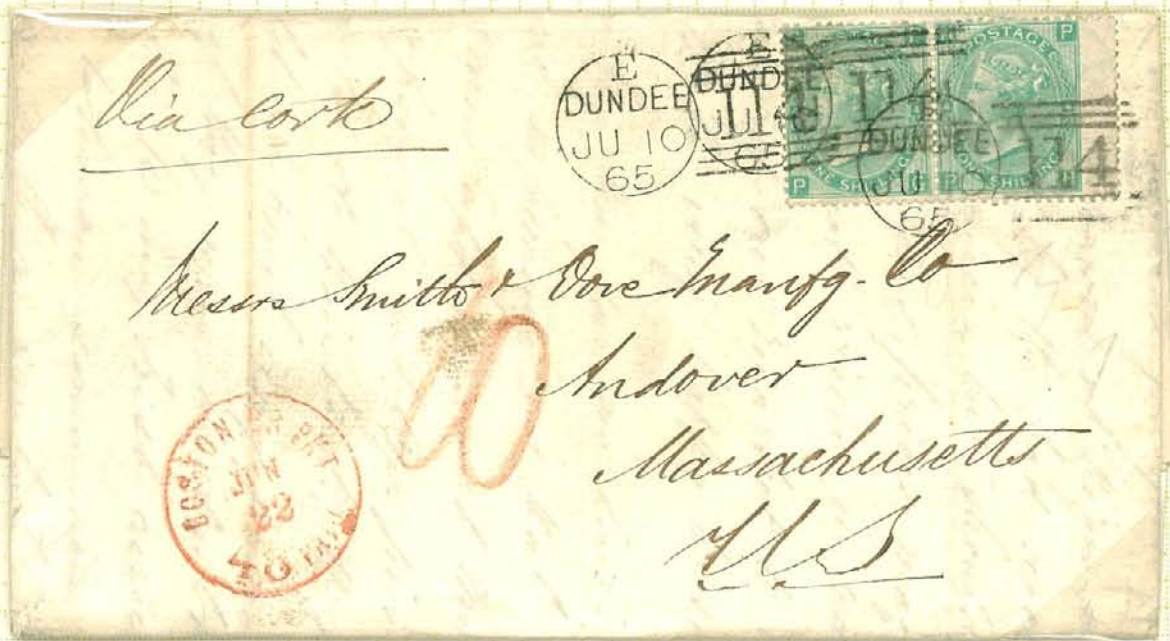 Via Cork
E
DUNDEE
JU 10
65
E
DUNDEE
JU 10
65
114
114
POSTAGE
P
P
ONE SHILLING
H
POSTAGE
P
P
ONE SHILLING
H
DUNDEE
JU 10
65
114
Messrs Smith & Dove Manufg. Co
Andover
Massachusetts
U.S
10
BOSTON BR PKT
JUN
22
40 PAID